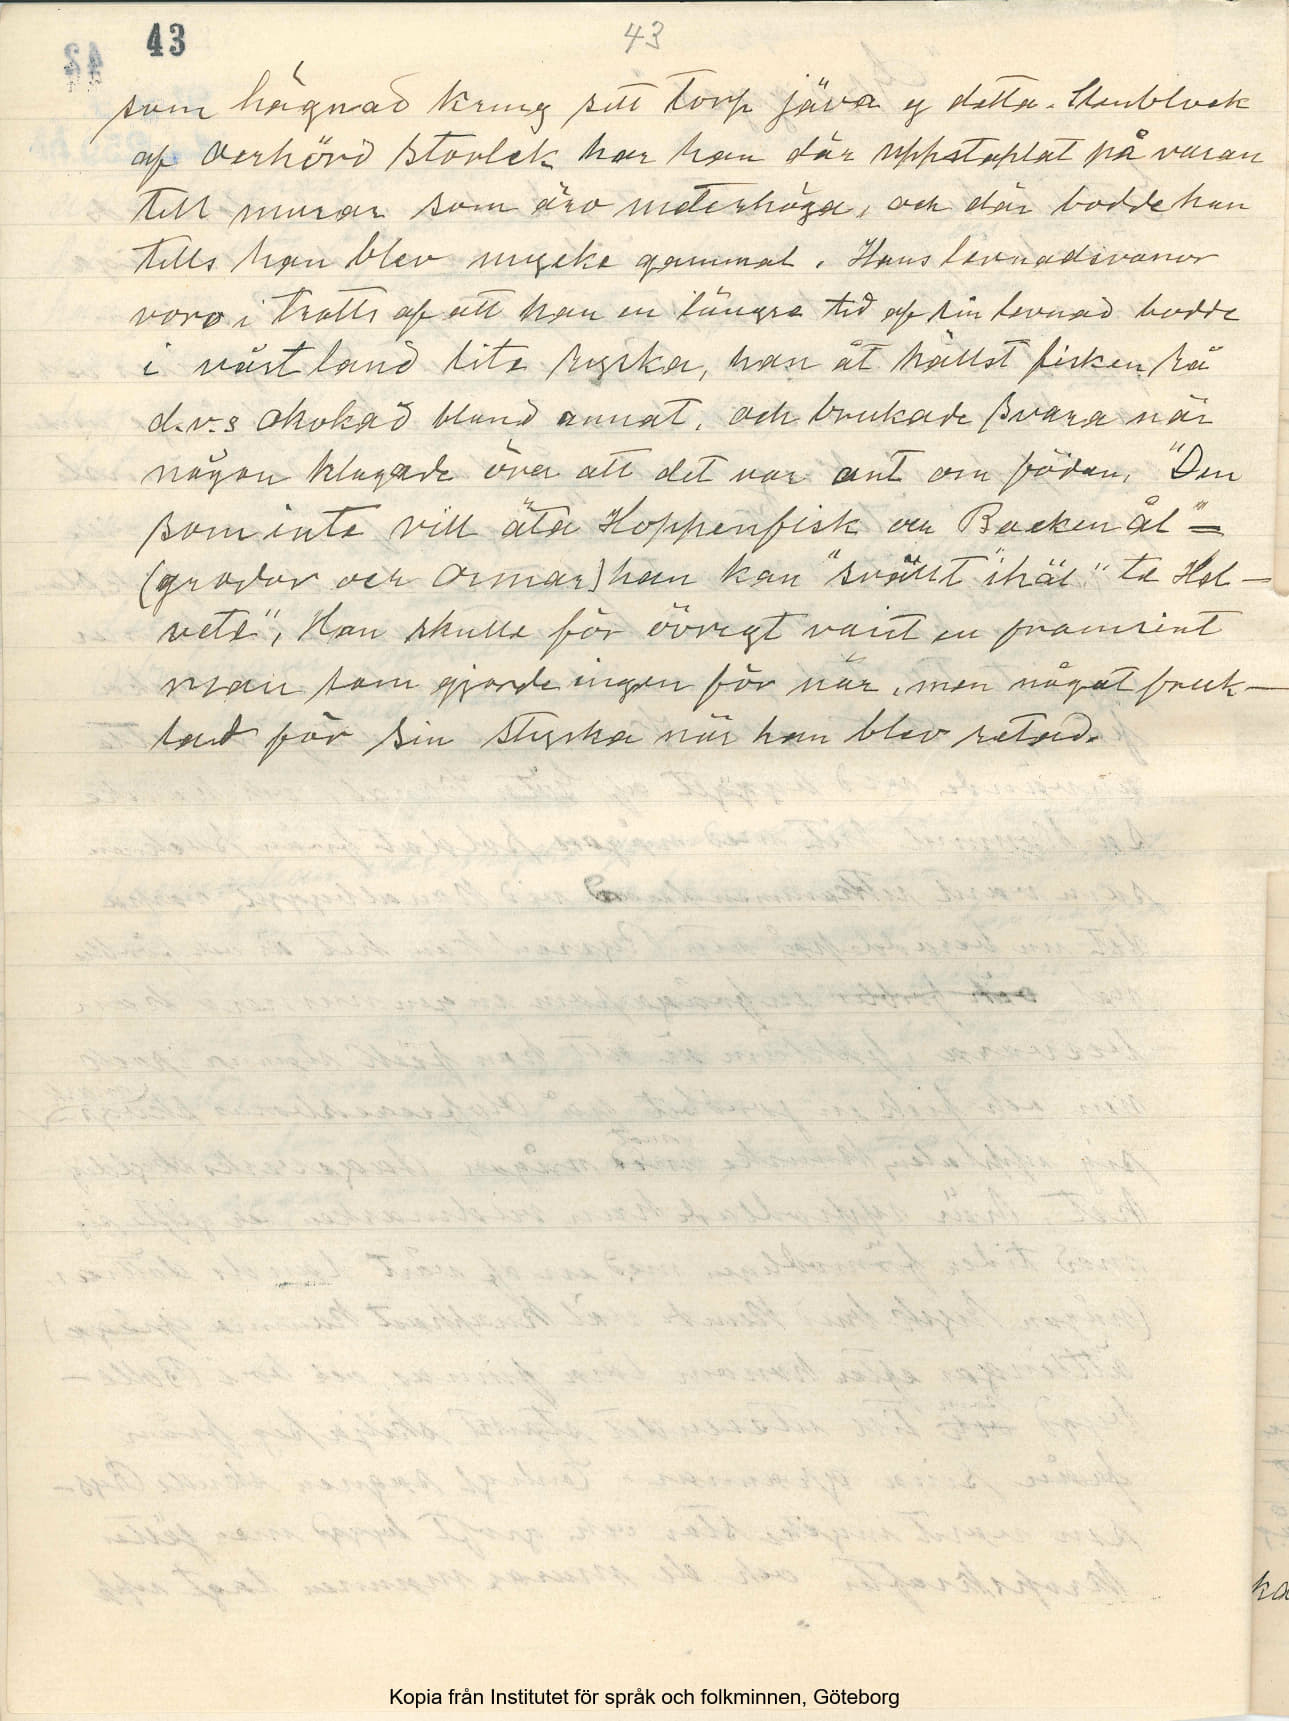 43 43
som hägnad kring sitt torp jäva ej detta. Stenblock
af oerhörd storlek har han där uppstaplat på varan
till murar som äro meterhöga, och där bodde han
tills han blev mycke gammal. Hans levnadsvanor
voro i trotts af att han en längre tid af sin levnad bodde
i vårt land lite ryska, han åt hällst fisken rå
d.v.s okokad bland annat, och brukade svara när
någon klagade över att det var ont om födan, "Den
som inte vill äta Hoppenfisk och Backen ål"=
(grodor och ormar) han kan "svällt ihäl" te Hel-
vete", Han skulle för övrigt varit en
man som gjorde ingen för när, men något fruk-
tad för sin styrka när han blev retad.
Kopia från Institutet för språk och folkminnen, Göteborg